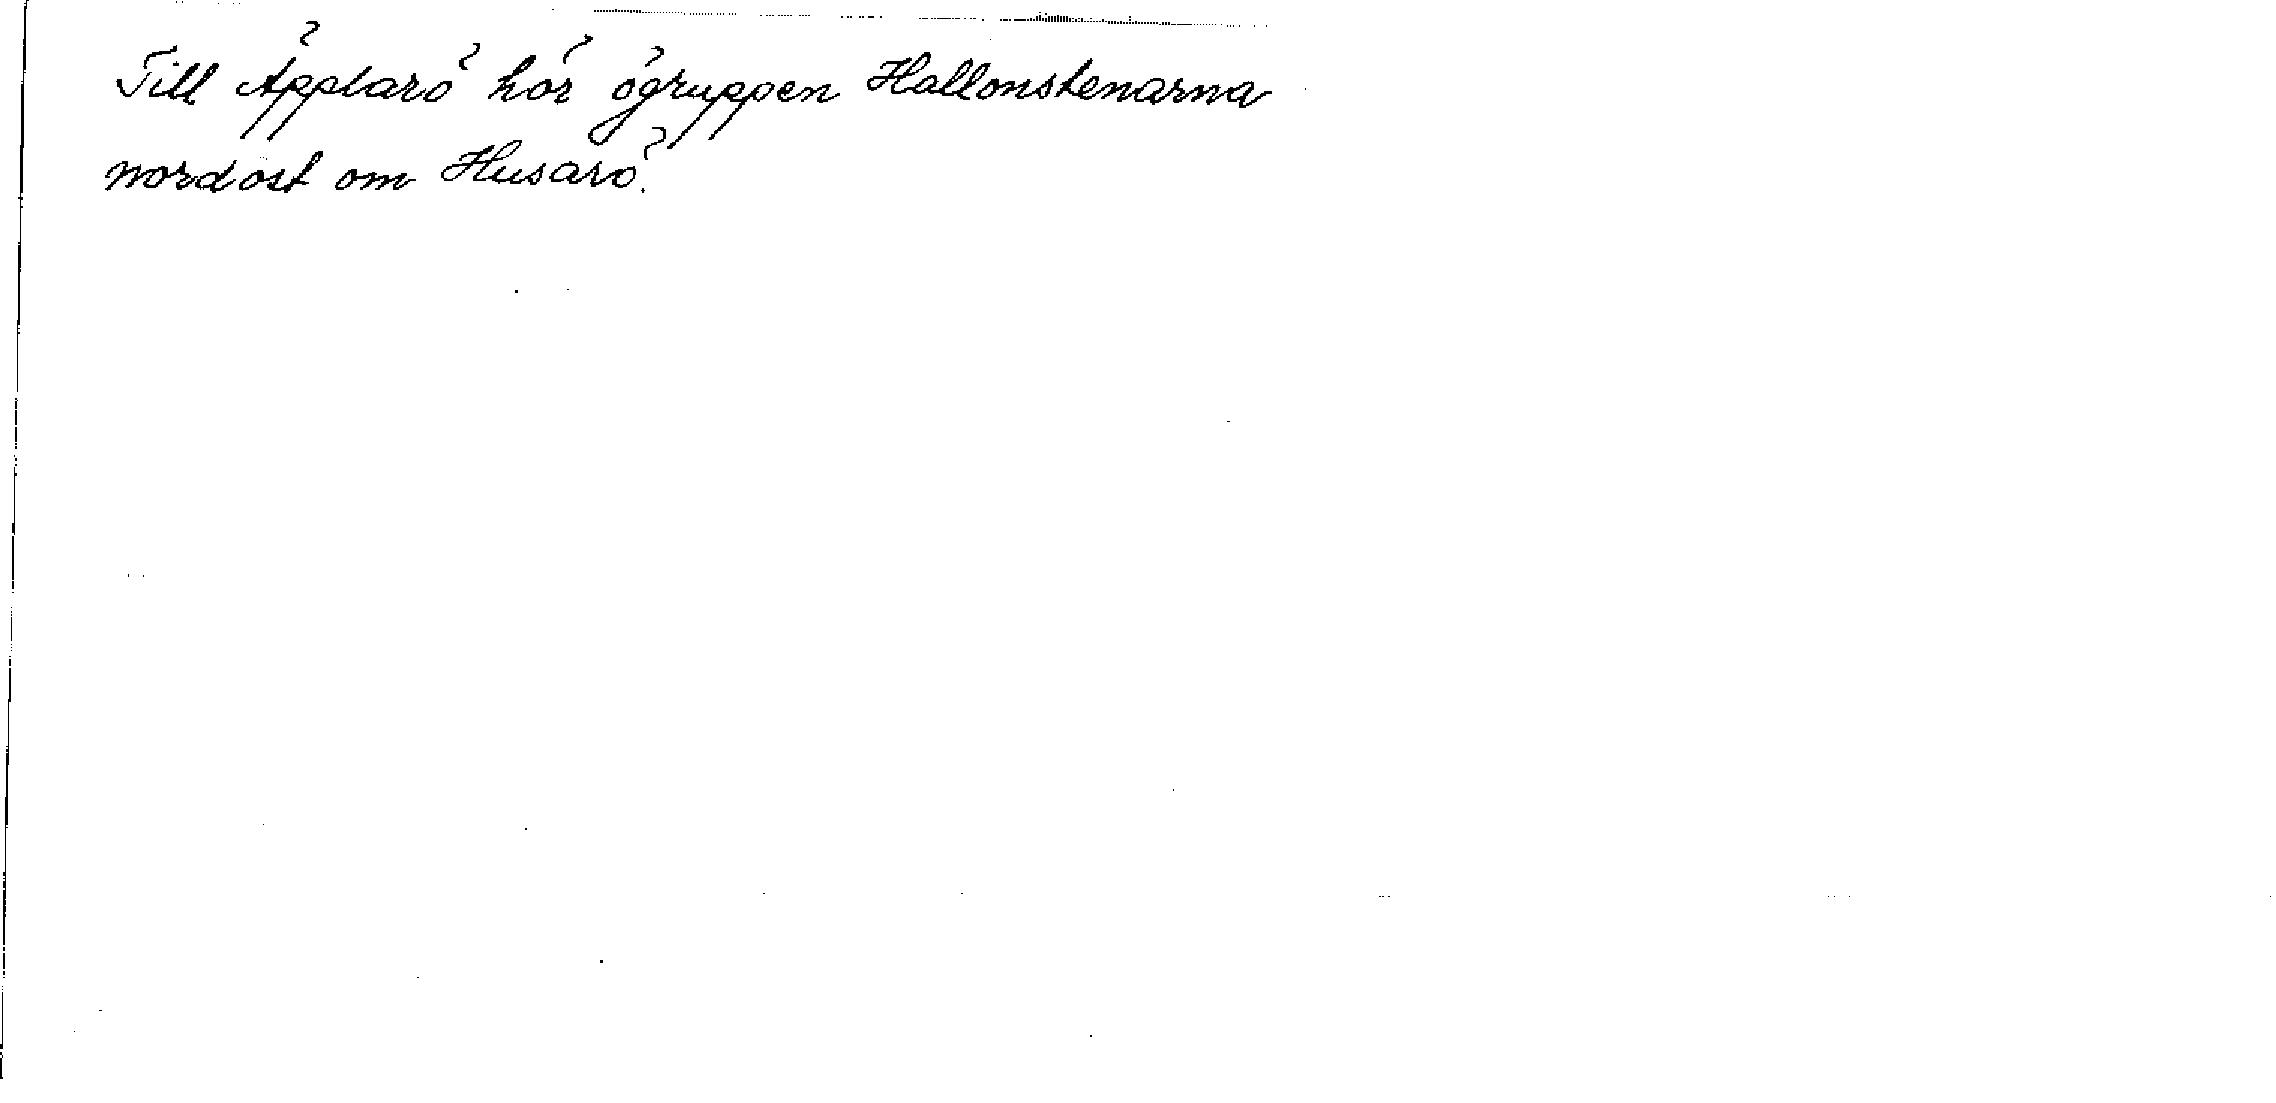 Till Äpplarö hör ögruppen Hallonstenarna
nordost om Husarö.